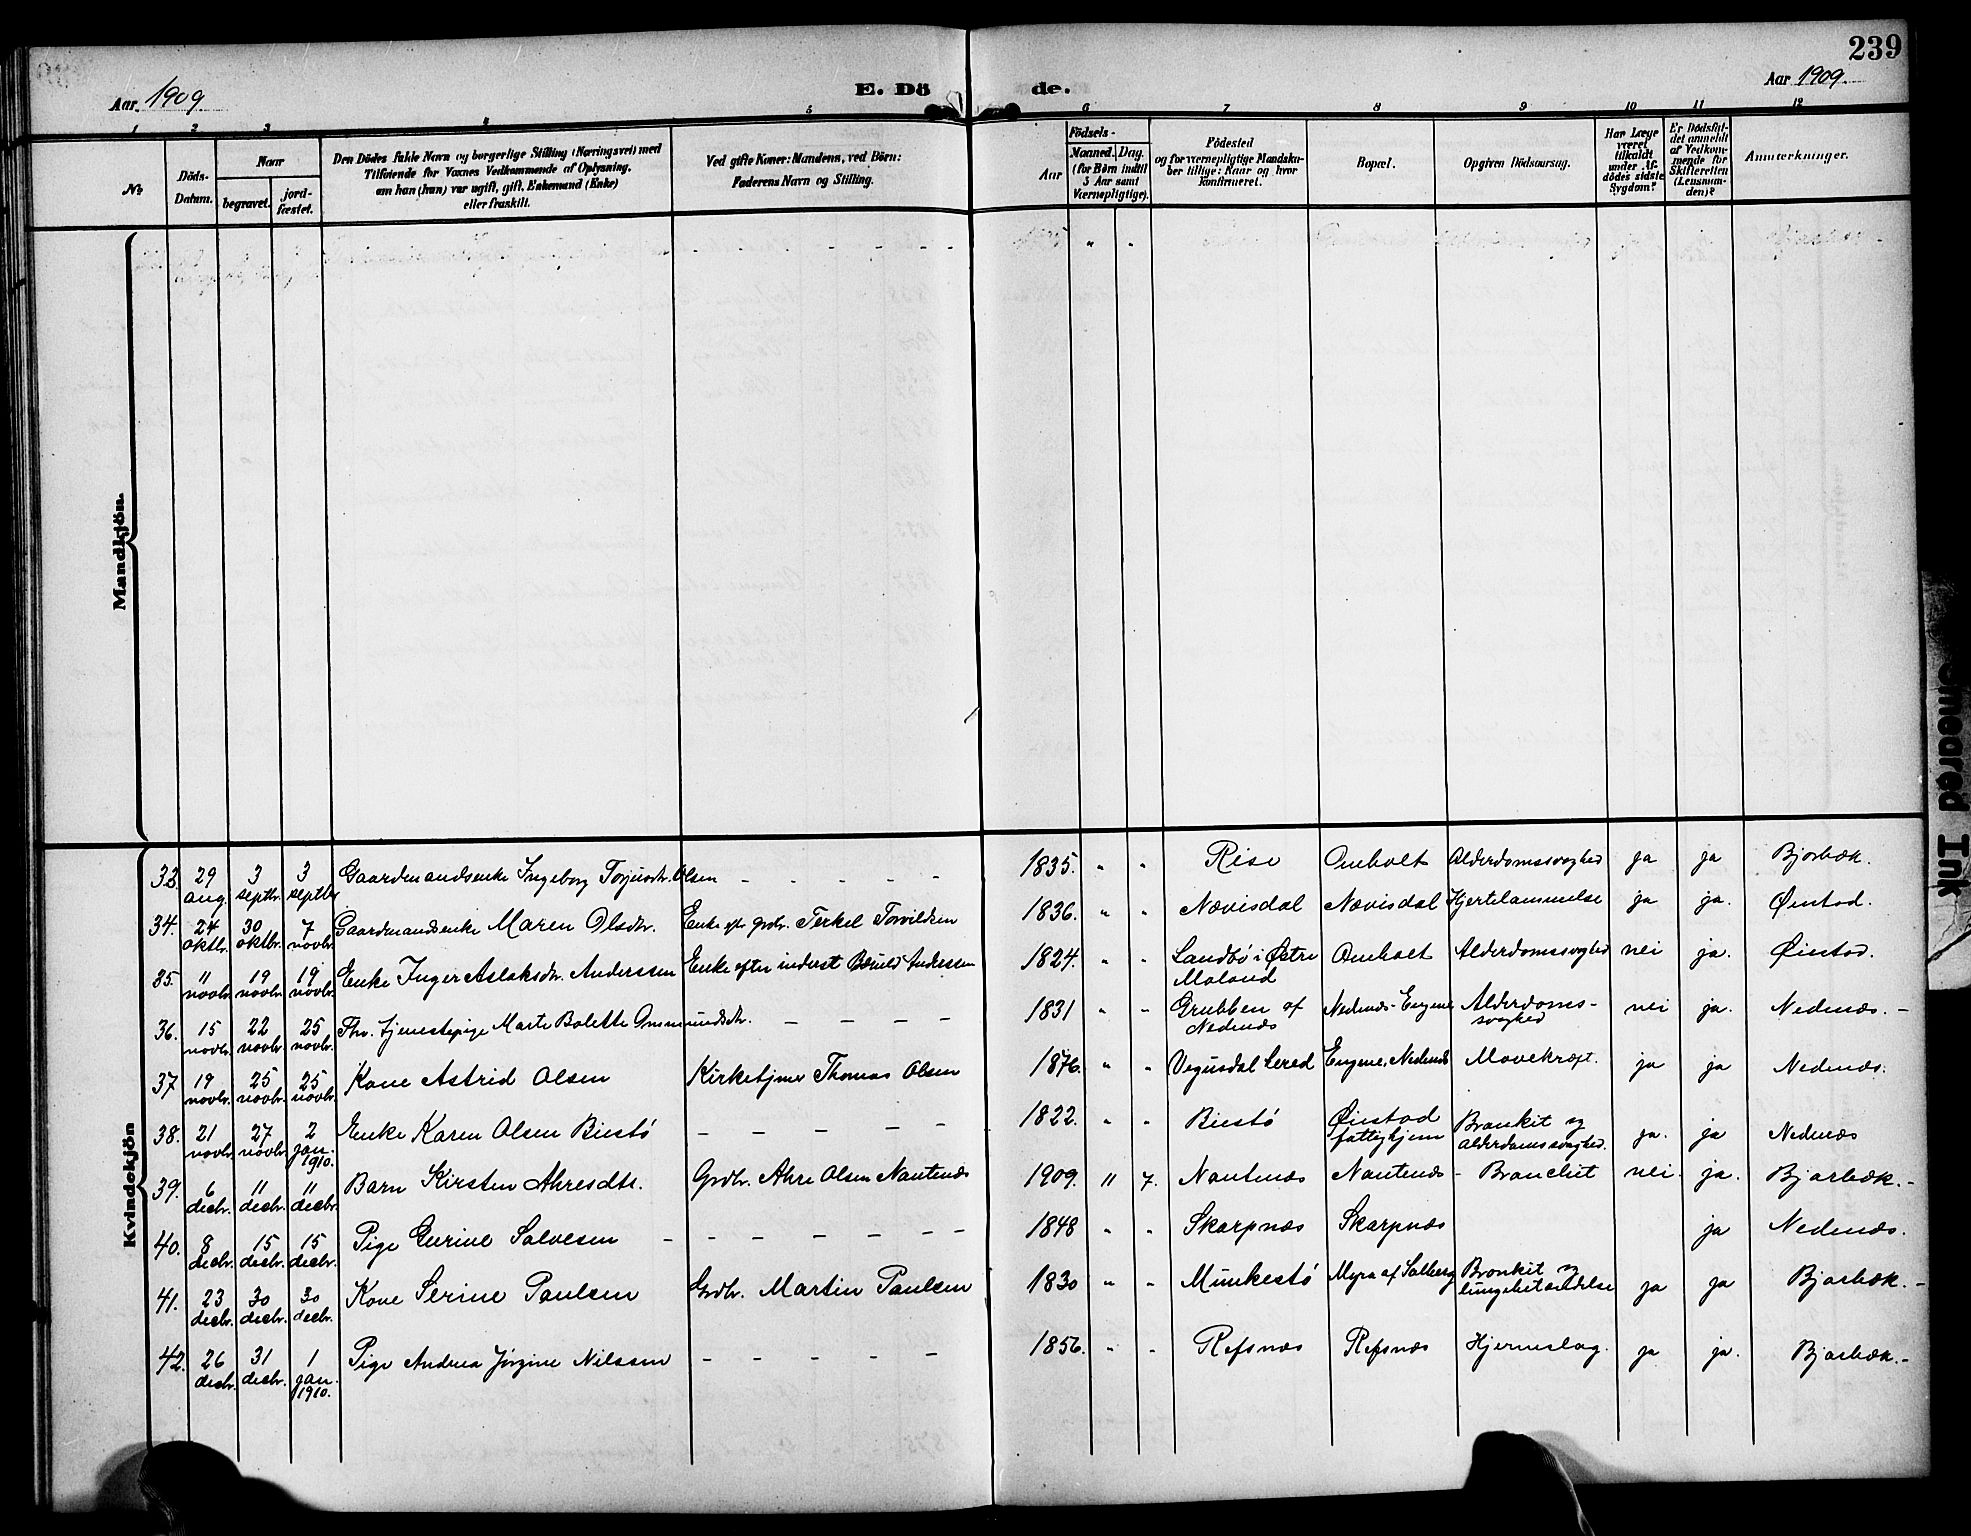 239
Aar 1909.
E. Dö de.
Aar 1909.
1 2 3 4 5 6 7 8 9 10 11 12
No
Döds-Datum.
Naar
begravet.
jord-fæstet.
Den Dödes fulde Navn og borgerlige Stilling (Næringsvei) med
Tilføiende for Voxnes Vedkommende af Oplysning,
om han (hun) var ugift, gift, Enkemand (Enke)
eller fraskilt.
Ved gifte Koner: Mandens, ved Börn:
Faderens Navn og Stilling.
Födsels-
Aar
Maaned. Dag.
(for Børn indtil
5 Aar samt
Værnepligtige).
Födested
og for værnepligtige Mandska-
ber tillige: Naar og hvor
konfirmeret.
Bopæl.
Opgiven Dödsaarsag.
Har Læge
været
tilkaldt
under Af-
dödes sidste
Sygdom?
Er Dödsfal-
det anmeldt
af Vedkom-
mende for
Skifteretten
(Lensman-
den)?
Anmærkninger.
Mandkjön.
Kvindekjön
33. 29 aug. 3 septbr. 3 septbr. Gaardmandsenke Ingeborg Torjusdr. Olsen - - - - - 1835. " " Rise Omholt Alderdomssvaghed ja ja Bjorbæk.
34. 24 oktbr. 30 oktbr. 7 novbr. Gaardmandsenke Maren Olsdr. Enke eftr grdbr. Terkel Torvildsen 1836. " " Nævisdal Nævisdal Hjertelammelse ja ja. Øiestad.
35. 11 novbr. 19 novbr. 19 novbr. Enke Inger Aslaksdr. Anderssen Enke efter inderst Anderssen 1824. " " Landbö i Østre Moland Omholt Alderdomssvaghed nei ja. Øiestad.
36. 15 novbr. 22 novbr. 25 novbr. Fhv. tjenestepige Marte Bolette Ommundsdr. - - - - 1831 " " Grubben af Nedenæs Nedenæs-Engene Alderdoms-svaghed nei ja. Nedenæs. -
37 19 novbr. 25 novbr. 25 novbr. Kone Astrid Olsen Kirketjener Thomas Olsen 1876. " " Vegusdal Engene, Nedenæs Mavekræft. ja ja Nedenæs.
38. 21 novbr. 27 novbr. 2 jan. 1910. Enke Karen Olsen Biestö - - - - - 1822. " " Biestö Øiestad fattighjem Bronkit og alderdomssvaghed. ja. ja Nedenæs
39. 6 decbr. 11 decbr. 11 decbr. Barn Kirsten Ahresdtr. Grdbr. Ahre Olsen Nautenæs 1909. 11 7. Nautenæs Nautenæs - Bronchit nei. ja. Bjorbæk. -
40. 8 decbr. 15 decbr. 15 decbr. Pige Gurine Salvesen - - - - - - - 1848 " " Skarpnæs Skarpnæs ja Nedenæs.
41. 23 decbr. 30 decbr. 30 decbr. Kone Serine Paulsen Grdbr. Martin Paulsen 1830 " " Munkestö Myra af Salberg Bronkit og lungebetændelse ja ja Bjorbæk. -
42. 26 decbr. 31 decbr. 1 jan. 1910. Pige Andrea Jörgine Nilssen - - - - - 1856. " " Refsnæs Refsnæs Hjerneslag. ja ja. Bjorbæk. -
Smeared Ink